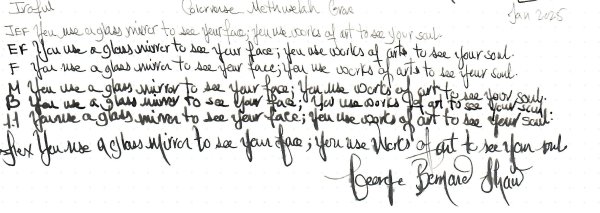 Iroful Colorverse Methuselah Grove Jan 2025
IEF You use a glass mirror to see your face; you use works of art to see your soul.
EF You use a glass mirror to see your face; you use works of arts to see your soul.
F You use a glass mirror to see your face; you use works of arts to see your soul.
M You use a glass mirror to see your face; you use works of art to see your soul.
B You use a glass mirror to see your face; you use works of art to see your soul.
1.1 You use a glass mirror to see your face; you use works of art to see your soul.
flex You use a glass mirror to see your face; you use works of art to see your soul
George Bernard Shaw